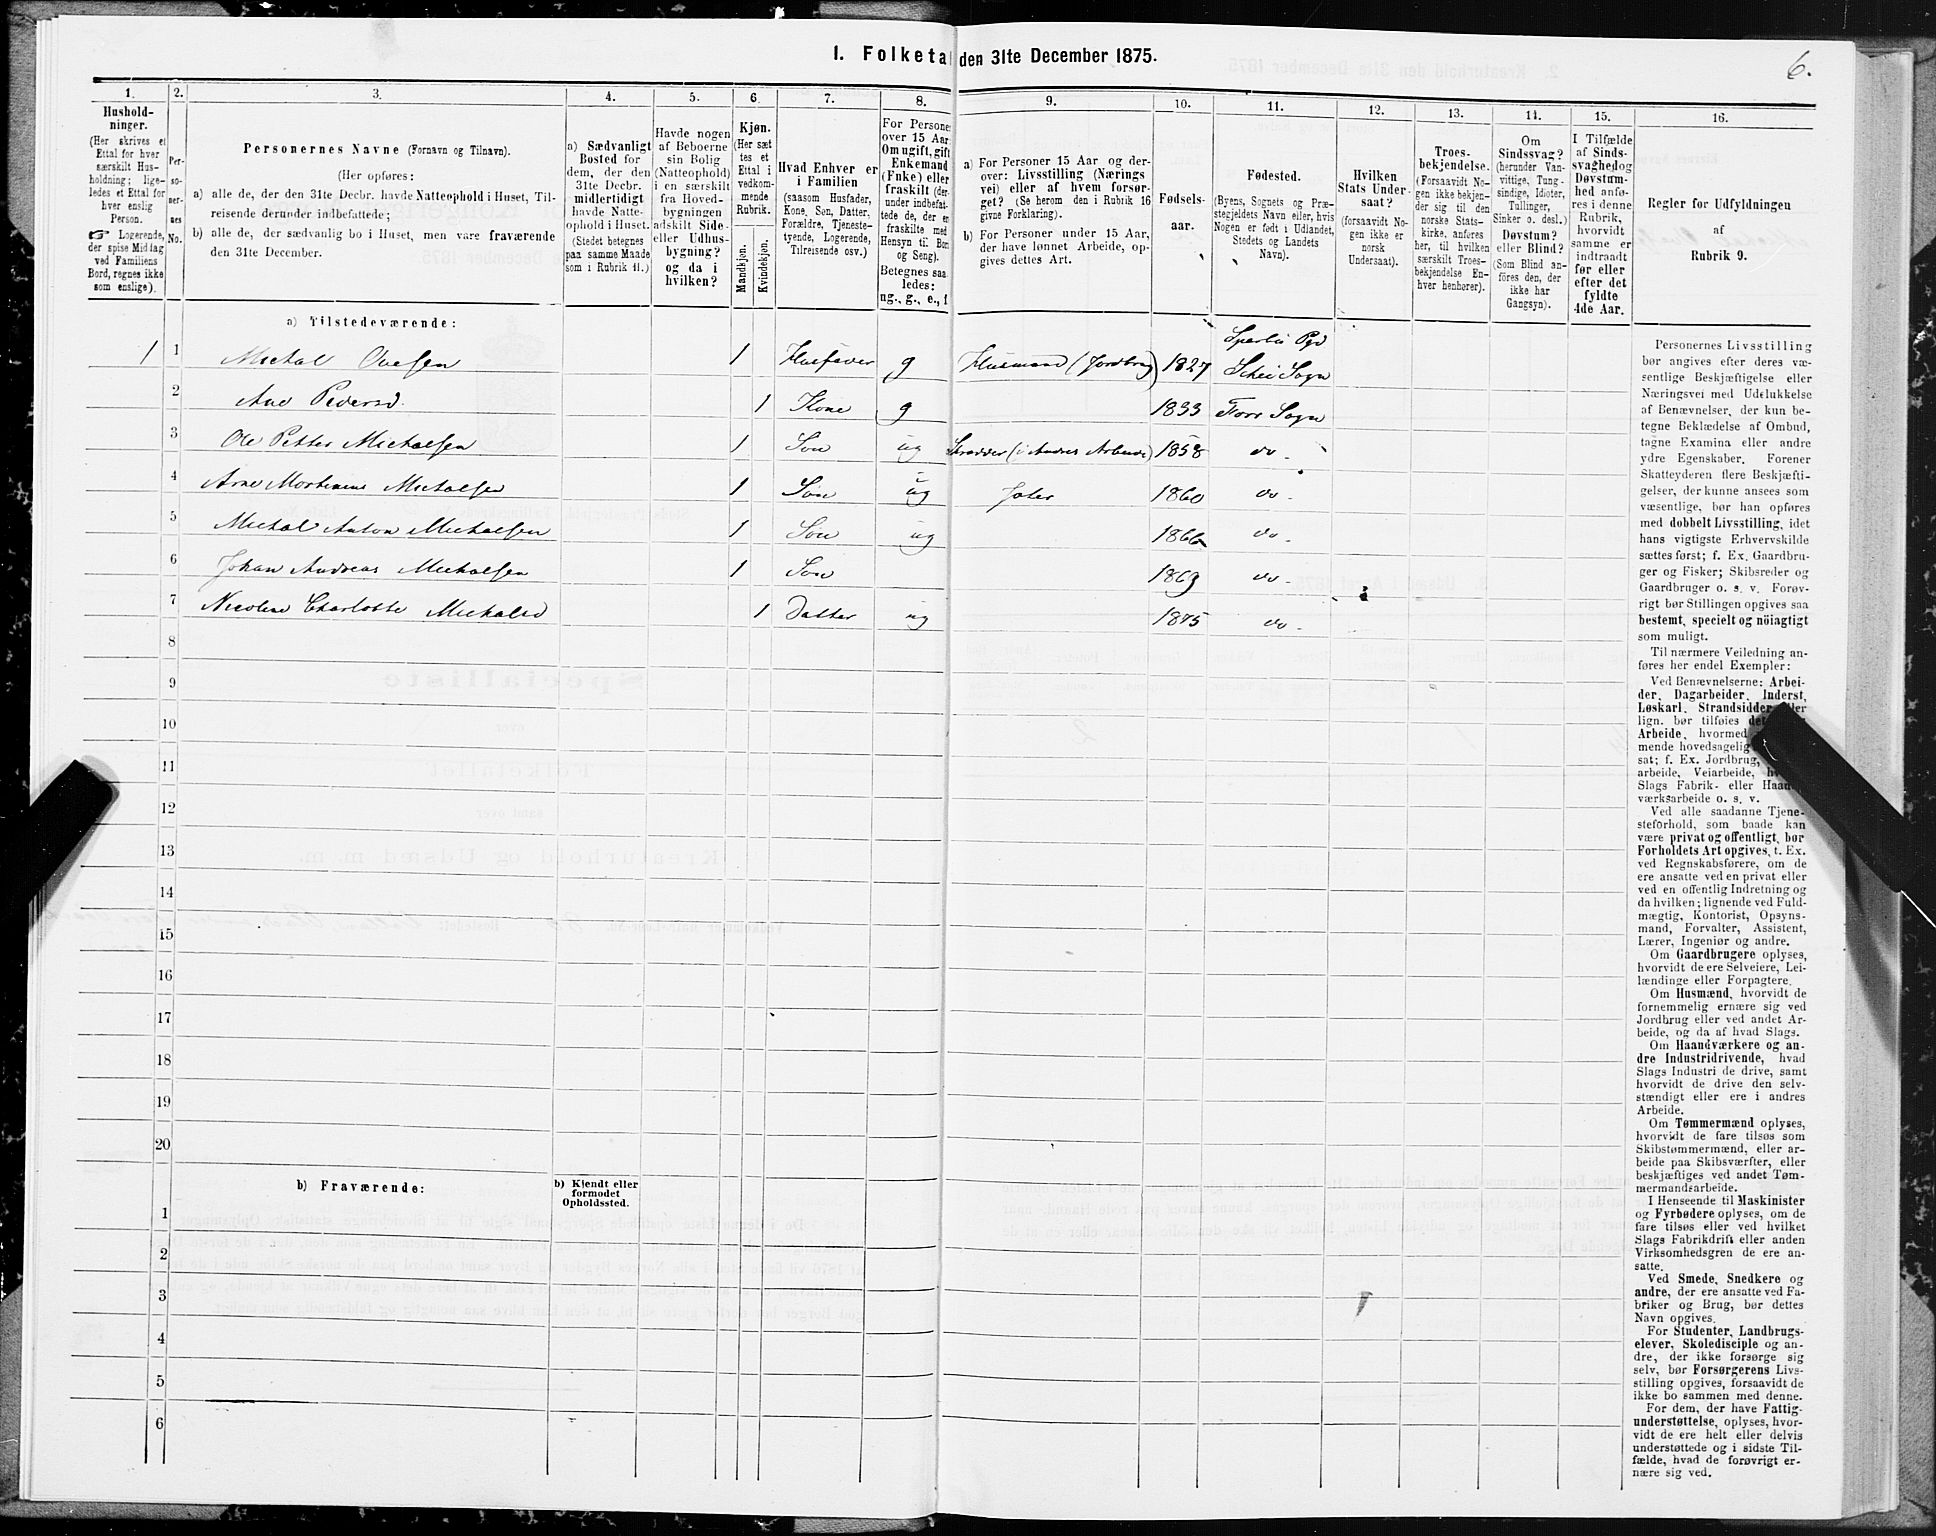 I. Folketal den 31te December 1875.
6.
1.
Hushold-
ninger.
(Her skrives et
Ettal for hver
særskilt Hus-
holdning; lige-
ledes et Ettal for
hver enslig
Person.
☞ Logerende,
der spise Middag
ved Familiens
Bord, regnes ikke
som enslige).
2.
Per-
so-
ner-
nes
No.
3.
Personernes Navne (Fornavn og Tilnavn).
(Her opføres:
a) alle de, der den 31te Decbr. havde Natteophold i Huset, Til-
reisende derunder indbefattede;
b) alle de, der sædvanlig bo i Huset, men vare fraværende
den 31te December.
4.
a) Sædvanligt
Bosted for
dem, der den
31te Decbr.
midlertidigt
havde Natte-
ophold i Huset.
(Stedet betegnes
paa samme Maade
som i Rubrik 11.)
5.
Havde nogen
af Beboerne
sin Bolig
(Natteophold)
i en særskilt
fra Hoved-
bygningen
adskilt Side-
eller Udhus-
bygning?
og da i
hvilken?
6.
Kjøn.
(Her sæt-
tes et
Ettal i
vedkom-
mende
Rubrik.
Mandkjøn.
Kvindekjøn.
7.
Hvad Enhver er
i Familien
(saasom Husfader,
Kone, Søn, Datter,
Forældre, Tjeneste-
tyende, Logerende,
Tilreisende osv.)
8.
For Persone
over 15 Aar
Om ugift, gift
Enkemand
(Enke) eller
fraskilt (der-
under indbefat-
tede de, der er
fraskilte med
Hensyn til Bor
og Seng).
Betegnes saa-
ledes:
ug., g., e., f
9.
a) For Personer 15 Aar og der-
over: Livsstilling (Nærings
vei) eller af hvem forsør-
get? (Se herom den i Rubrik 16
givne Forklaring).
b) For Personer under 15 Aar,
der have lønnet Arbeide, op-
gives dettes Art.
10.
Fødsels-
aar.
11.
Fødested.
(Byens, Sognets og Præ-
stegjeldets Navn eller, hvis
Nogen er født i Udlandet,
Stedets og Landets
Navn).
12.
Hvilken
Stats Under-
saat?
(forsaavidt No-
gen ikke er
norsk
Undersaat).
13.
Troes-
bekjendelse.
(Forsaavidt No-
gen ikke bekjen-
der sig til den
norske Stats-
kirke, anføres
her, til hvilken
særskilt Troes-
bekjendelse En-
hver henhører).
14.
Om
Sindssvag?
(herunder Van-
vittige, Tung-
sindige, Idioter,
Tullinger,
Sinker o. desl.)
Døvstum?
eller Blind?
(Som Blind an-
føres den, der
ikke har
Gangsyn).
15.
I Tilfælde
af Sinds-
svaghed og
Døvstum-
hed anfø-
res i denne
Rubrik,
hvorvidt
samme er
indtraadt
før eller
efter det
fyldte
4de Aar.
16.
Regler for Udfyldningen
af
Rubrik 9.
a) Tilstedeværende:
Sparbu Pgd
1 1 Michal Ovesen 1 Husfader g Husmand (Jordbrug) 1827 Schei Sogn
2 Ane Pedersd. 1 Kone g 1833 Forr Sogn
3 Ole Petter Michalsen 1 Søn ug Skrædder (i Andres Arbeide) 1858 do -
4 Arne Martinus Michalsen 1 Søn ug 1860 do -
5 Michal Anton Michalsen 1 Søn ug 1866 do -
6 Johan Andreas Michalsen 1 Søn 1869 do -
7 Nicoline Charlotte Michalsd 1 Datter ug 1875 do -
8
9
10
11
12
13
14
15
16
17
18
19
20
b) Fraværende:
b) Kjendt eller
formodet
Opholdssted.
1
2
3
4
5
6
Personernes Livsstilling
bør angives efter deres væ-
sentlige Beskjæftigelse eller
Næringsvei med Udelukkelse
af Benævnelser, der kun be-
tegne Beklædelse af Ombud,
tagne Examina eller andre
ydre Egenskaber. Forener
Skatteyderen flere Beskjæfti-
gelser, der kunne ansees som
væsentlige, bør han opføres
med dobbelt Livsstilling, idet
hans vigtigste Erhvervskilde
sættes først; f. Ex. Gaardbru-
ger og Fisker; Skibsreder og
Gaardbruger o. s. v. Forøv-
rigt bør Stillingen opgives saa
bestemt, specielt og nöiagtigt
som muligt.
Til nærmere Veiledning an-
føres her endel Exempler:
Ved Benævnelserne: Arbei-
der, Dagarbeider, Inderst,
Løskarl, Strandsidder eller
lign. bør tilføies det
Arbeide, hvormed
mende hovedsagelig
sat; f. Ex. Jordbrug,
arbeide, Veiarbeide, hv
Slags Fabrik- eller Haand-
værksarbeide o. s. v.
Ved alle saadanne Tjene-
steforhold, som baade kan
være privat og offentligt, bør
Forholdets Art opgives, t. Ex.
ved Regnskabsførere, om de
ere ansatte ved en privat eller
ved en offentlig Indretning og
da hvilken; lignende ved Fuld-
mægtig, Kontorist, Opsyns-
mand, Forvalter, Assistent,
Lærer, Ingeniør og andre.
Om Gaardbrugere oplyses,
hvorvidt de ere Selveiere, Lei-
lændinge eller Forpagtere.
Om Husmænd, hvorvidt de
fornemmelig ernære sig ved
Jordbrug eller ved andet Ar-
beide, og da af hvad Slags.
Om Haandværkere og an-
dre Industridrivende, hvad
Slags Industri de drive, samt
hvorvidt de drive den selv-
stændigt eller ere i andres
Arbeide.
Om Tømmermænd oplyses,
hvorvidt de fare tilsøs som
Skibstømmermænd, eller ar-
beide paa Skibsværfter, eller
beskjæftiges ved andet Tøm-
mermandsarbeide.
I Henseende til Maskinister
og Fyrbødere oplyses, om de
fare tilsøs eller ved hvilket
Slags Fabrikdrift eller anden
Virksomhedsgren de ere an-
satte.
Ved Smede, Snedkere og
andre, der ere ansatte ved Fa-
briker og Brug, bør dettes
Navn opgives.
For Studenter, Landbrugs-
elever, Skoledisciple og an-
dre, der ikke forsørge sig
selv, bør Forsørgerens Livs-
stilling opgives, forsaavidt de
ikke bo sammen med denne.
For dem, der have Fattig-
understøttelse, oplyses, hvor-
vidt de ere helt eller delvis
understøttede og i sidste Til-
fælde, hvad de forøvrigt er-
nære sig ved.